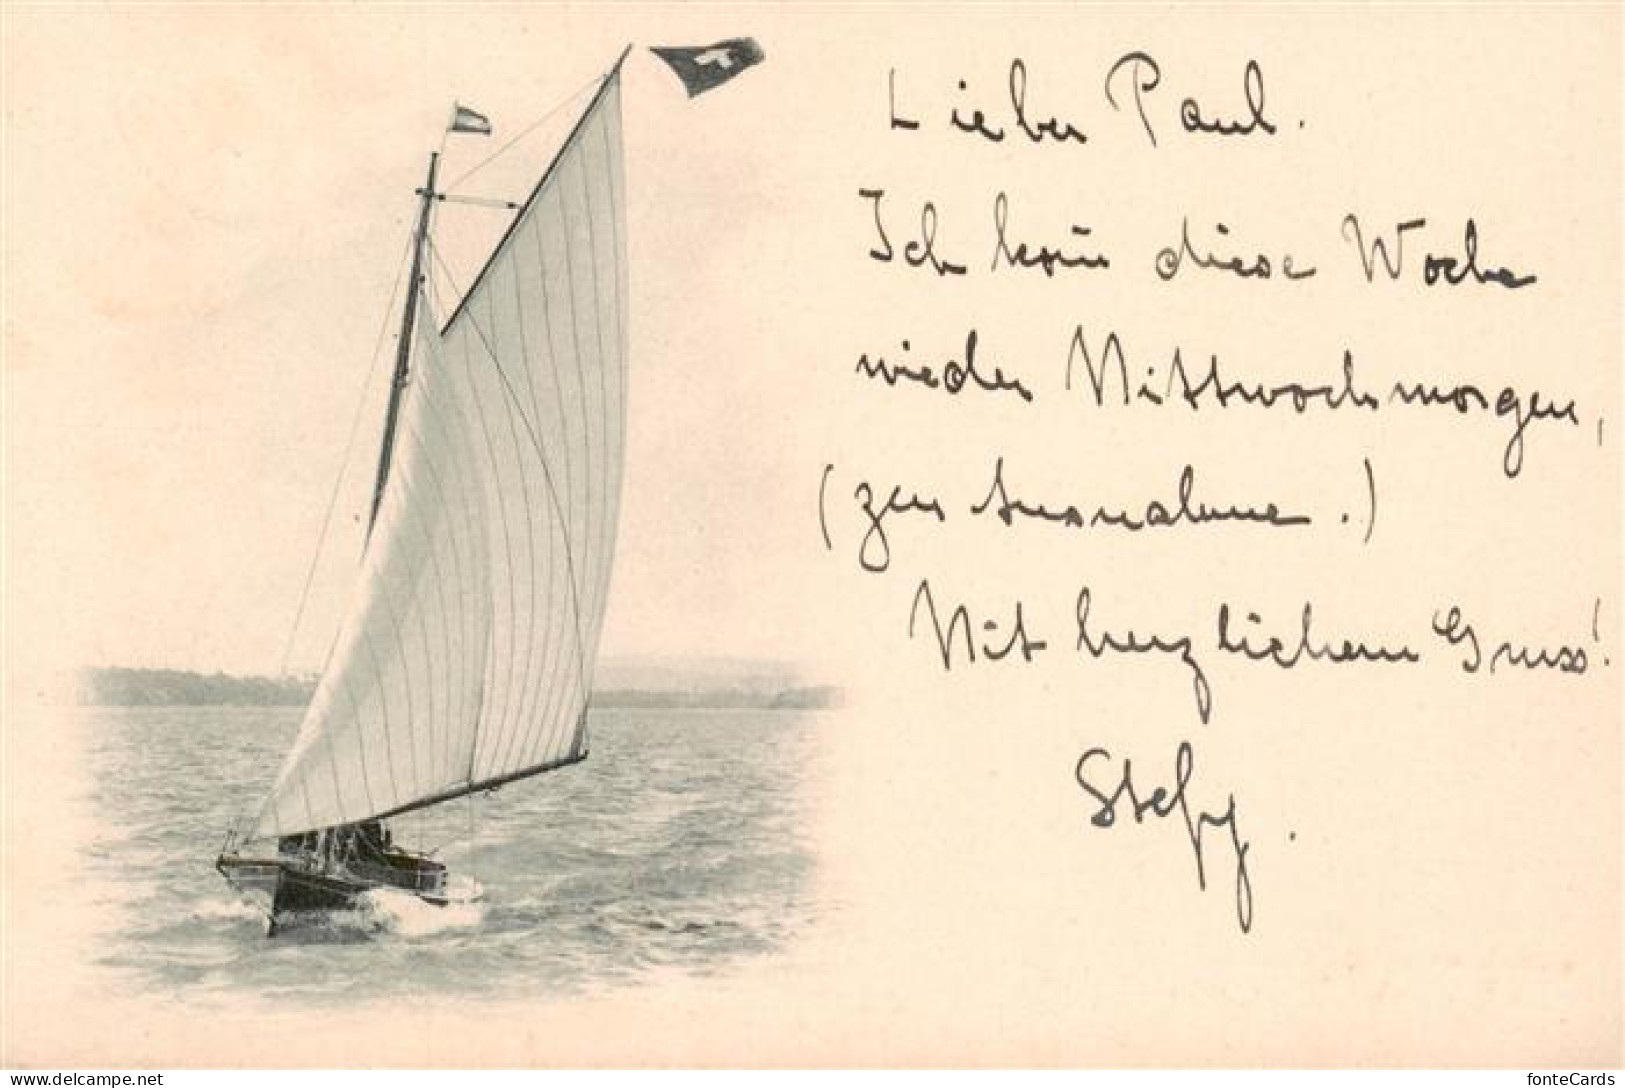 Lieber Paul.
Ich kom̄ diese Woche
wieder Mittwochmorgen,
(zur Ausnahme.)
Mit herzlichem Gruss!
Stefy.
delcampe.net
fonteCards